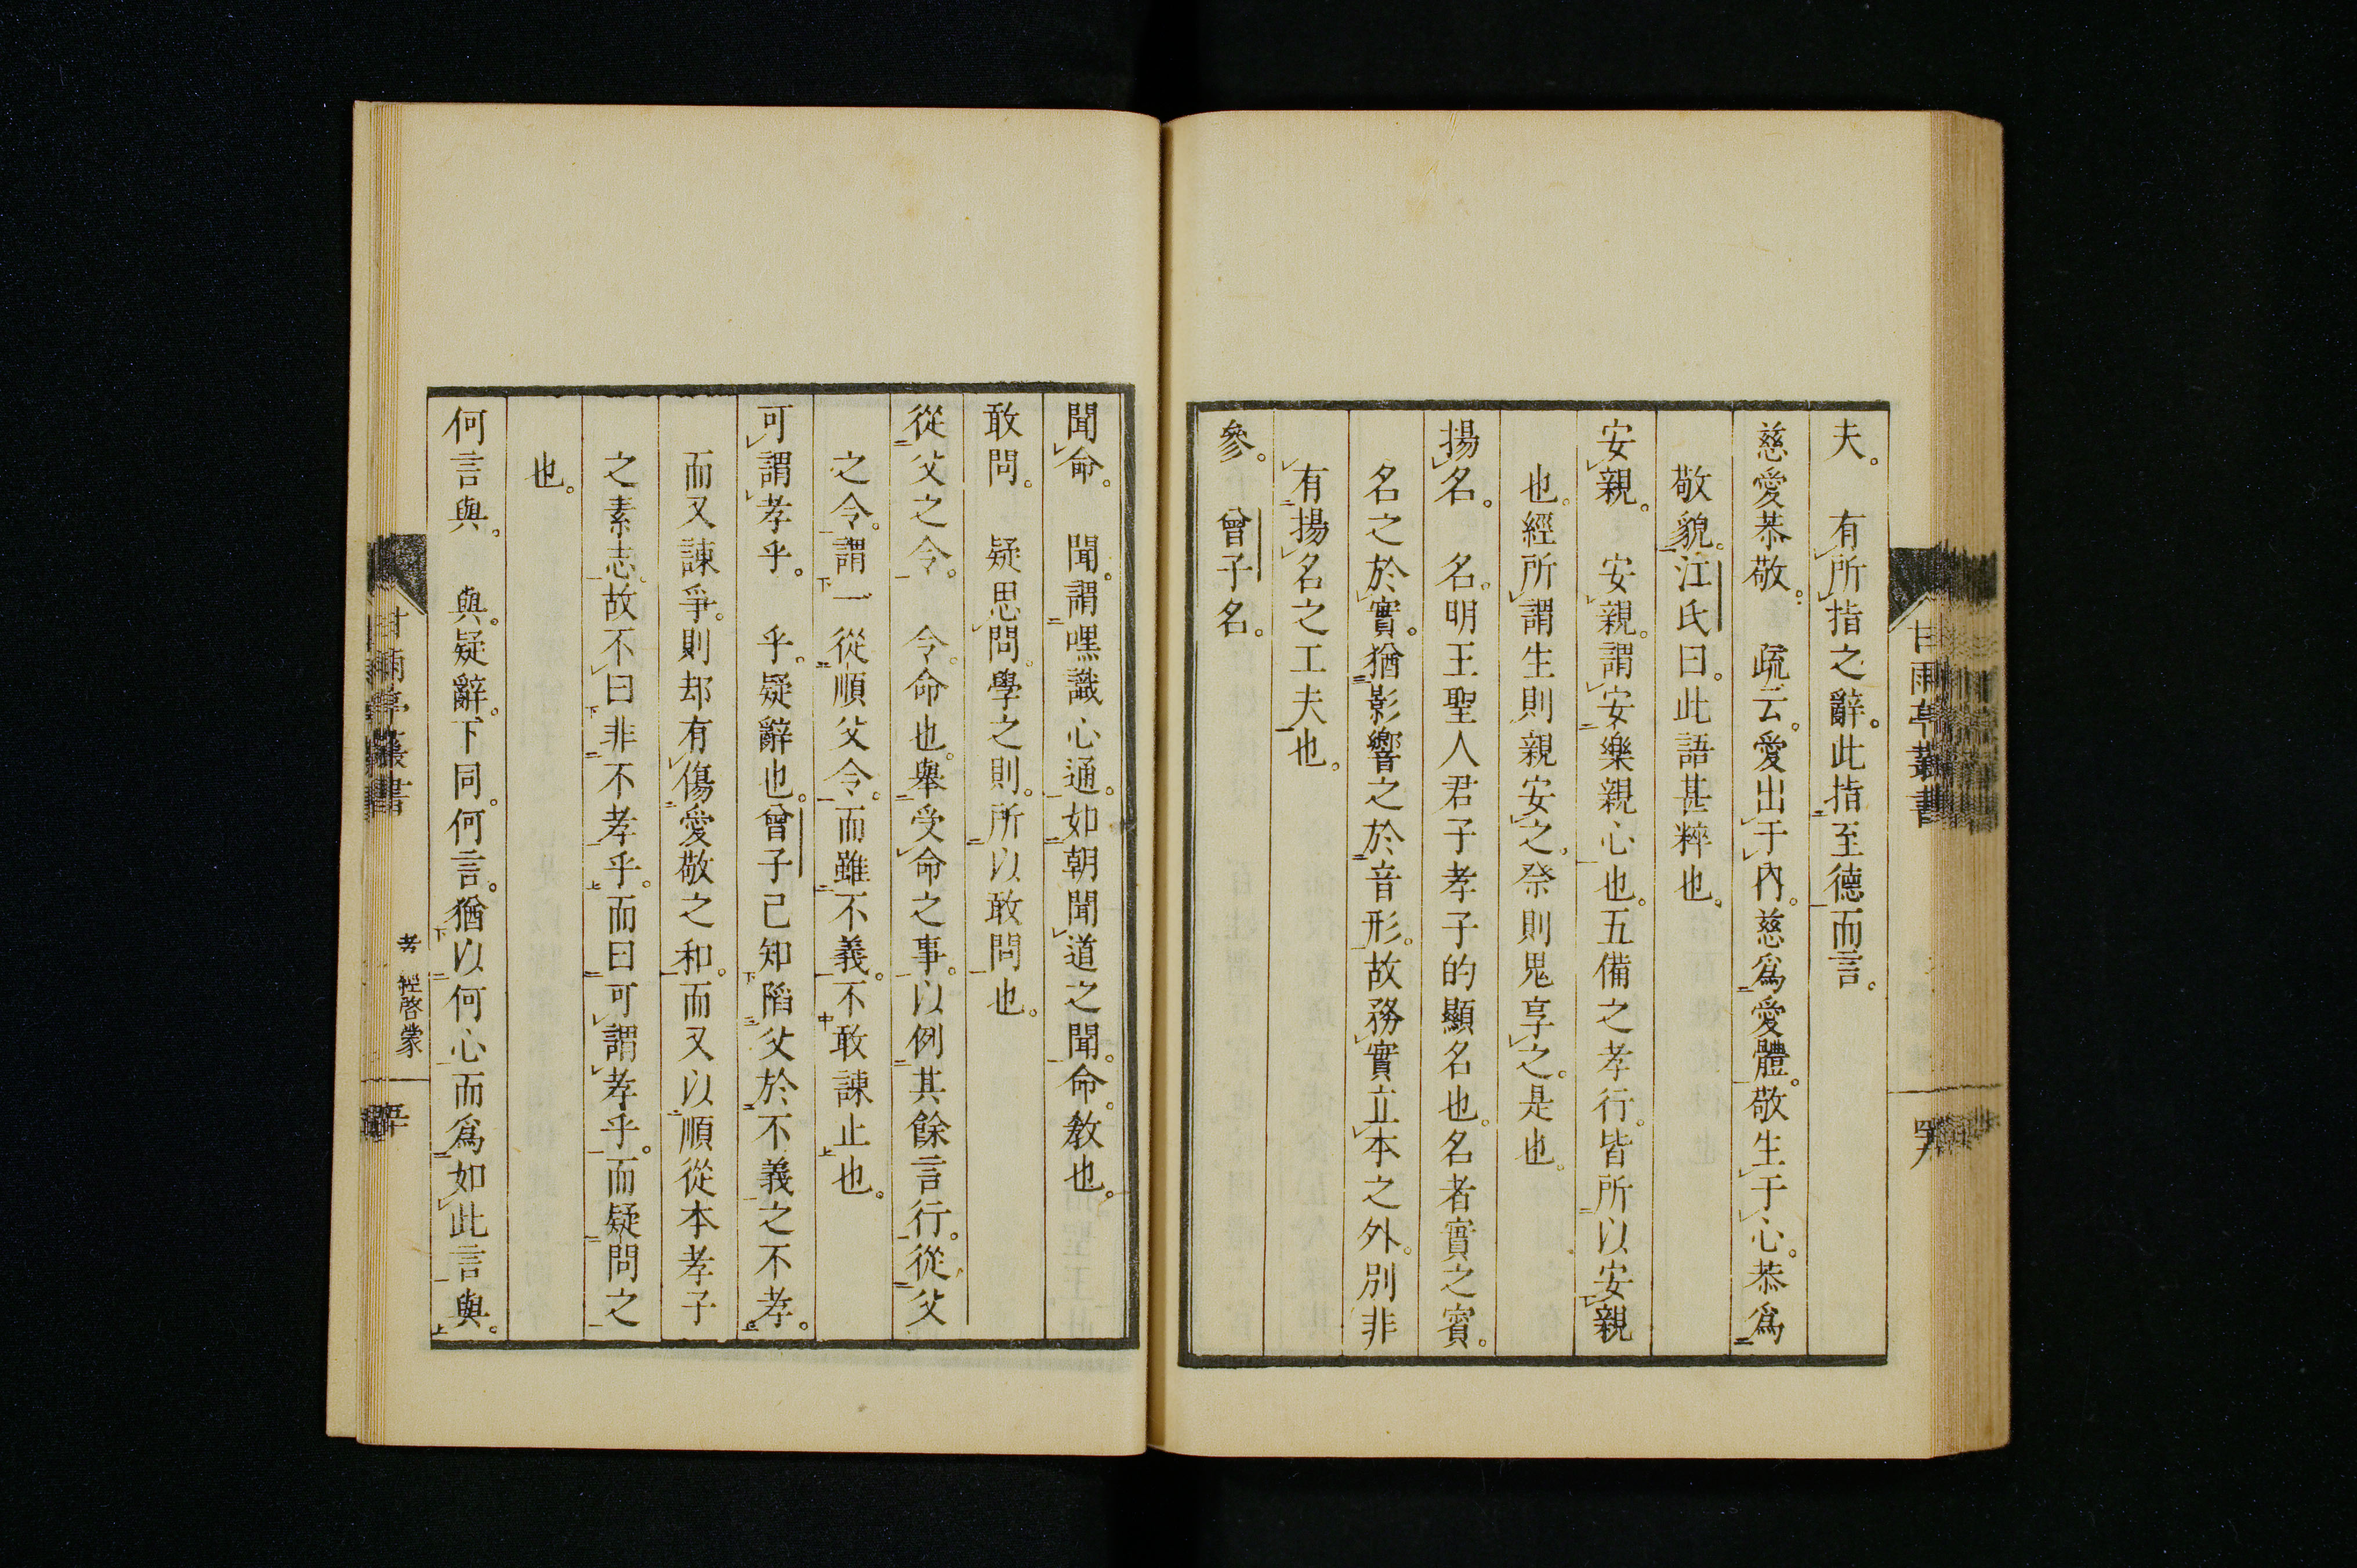 夫。有所指之辭。此指至德而言。
慈愛恭敬。疏云。愛出于內。慈爲愛體。敬生于心。恭爲
敬貌。江氏曰。此語甚粹也。
安親。安親。謂安樂親心也。五備之孝行。皆所以安親
也。經所謂生則親安之。祭則鬼享之。是也。
揚名。名。明王聖人君子孝子的顯名也。名者實之賓。
名之於實。猶影響之於音形。故務實立本之外。別非
有揚名之工夫也。
參。曾子名。
甘雨亭叢書
聞命。聞。謂嘿識心通。如朝聞道之聞。命。教也。
敢問。疑思問。學之則。所以敢問也。
從父之令。令。命也。舉受命之事。以例其餘言行。從父
之令。謂一從順父令。而雖不義。不敢諫止也。
可謂孝乎。乎。疑辭也。曾子已知陷父於不義之不孝。
而又諫爭。則却有傷愛敬之和。而又以順從本孝子
之素志。故不曰非不孝乎。而曰可謂孝乎。而疑問之
也。
何言與。與。疑辭。下同。何言。猶以何心而爲如此言與。
甘雨亭叢書
孝經啓蒙